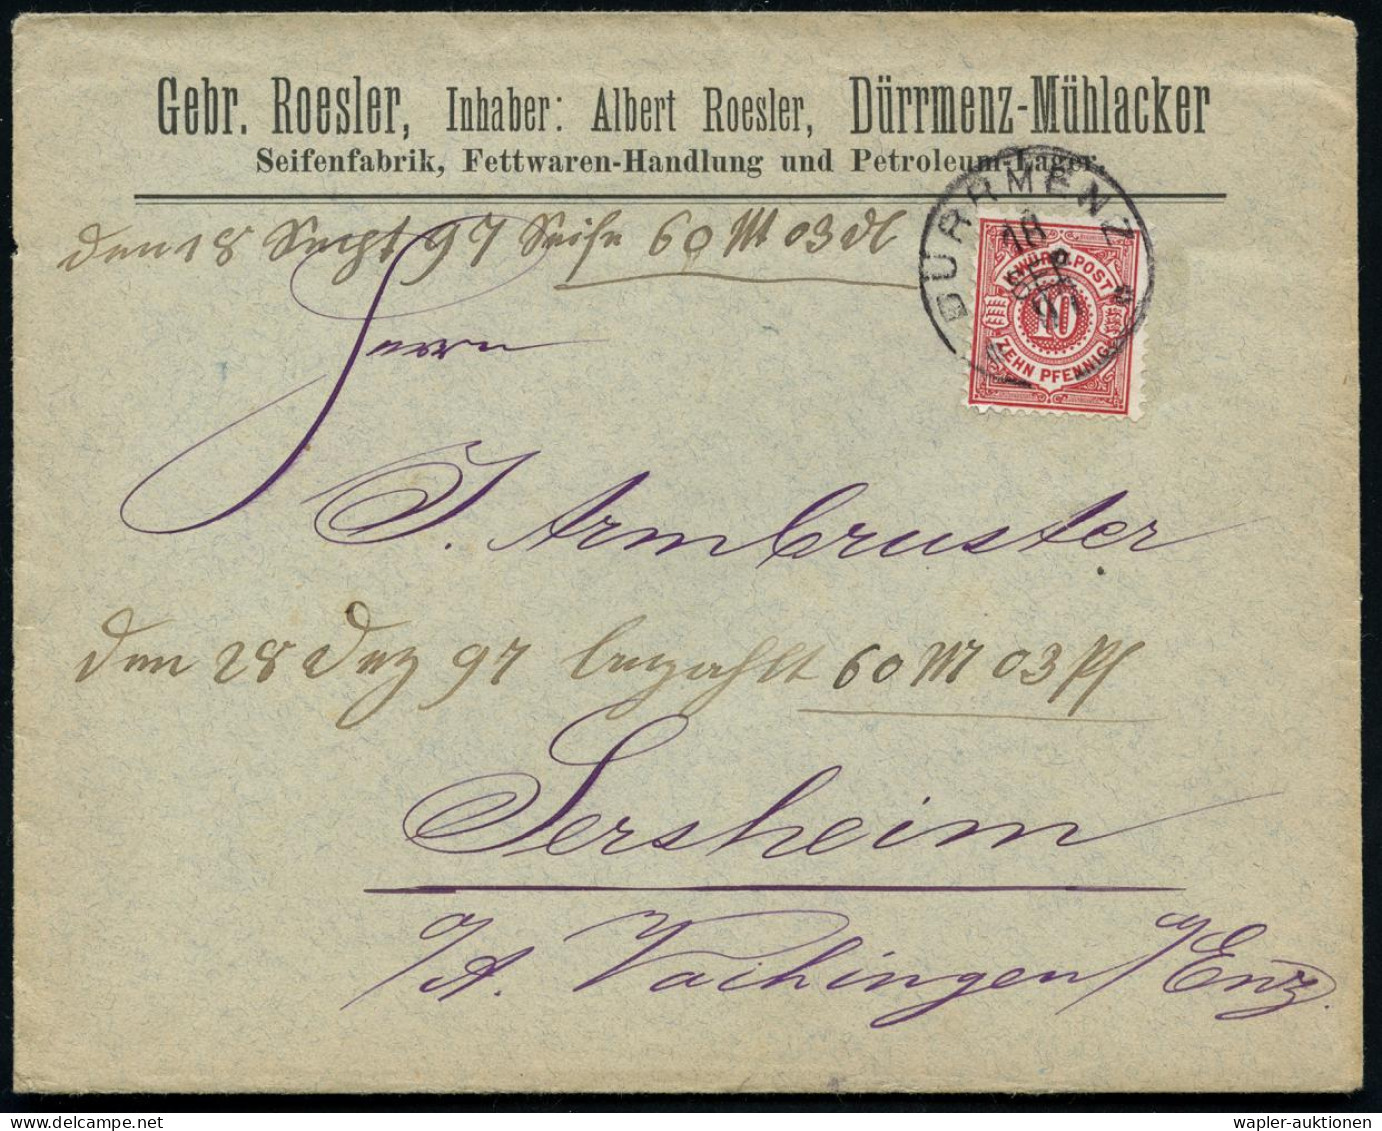 Gebr. Roesler, Inhaber: Albert Roesler, Dürrmenz-Mühlacker
Seifenfabrik, Fettwaren-Handlung und Petroleum-Lager.
den 18 Sept 97 Seife 60 M 03 ₰
DÜRRMENZ
18
SEP
K. WÜRTT. POST
10
ZEHN PFENNIG
Herrn
J. Armbruster
den 28 Dez 97 bezahlt 60 M 03 Pf
Sersheim
O/A. Vaihingen a/Enz.
wapler-auktionen